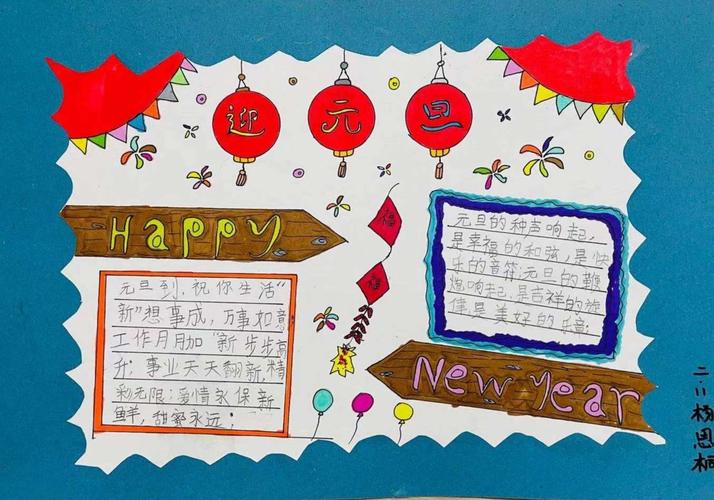 迎元旦
Happy
福
福
元旦的种声响起,
是幸福的和弦,是快
乐的音符;元旦的鞭
炮响起,是吉祥的旋
律是美好的乐章;
元旦到,祝你生活“
新”想事成,万事如意
工作月月加“新步步高
升;事业天天翻新,精
彩无限;爱情永保新
鲜,甜蜜永远;
New Year
二.11杨恩桐